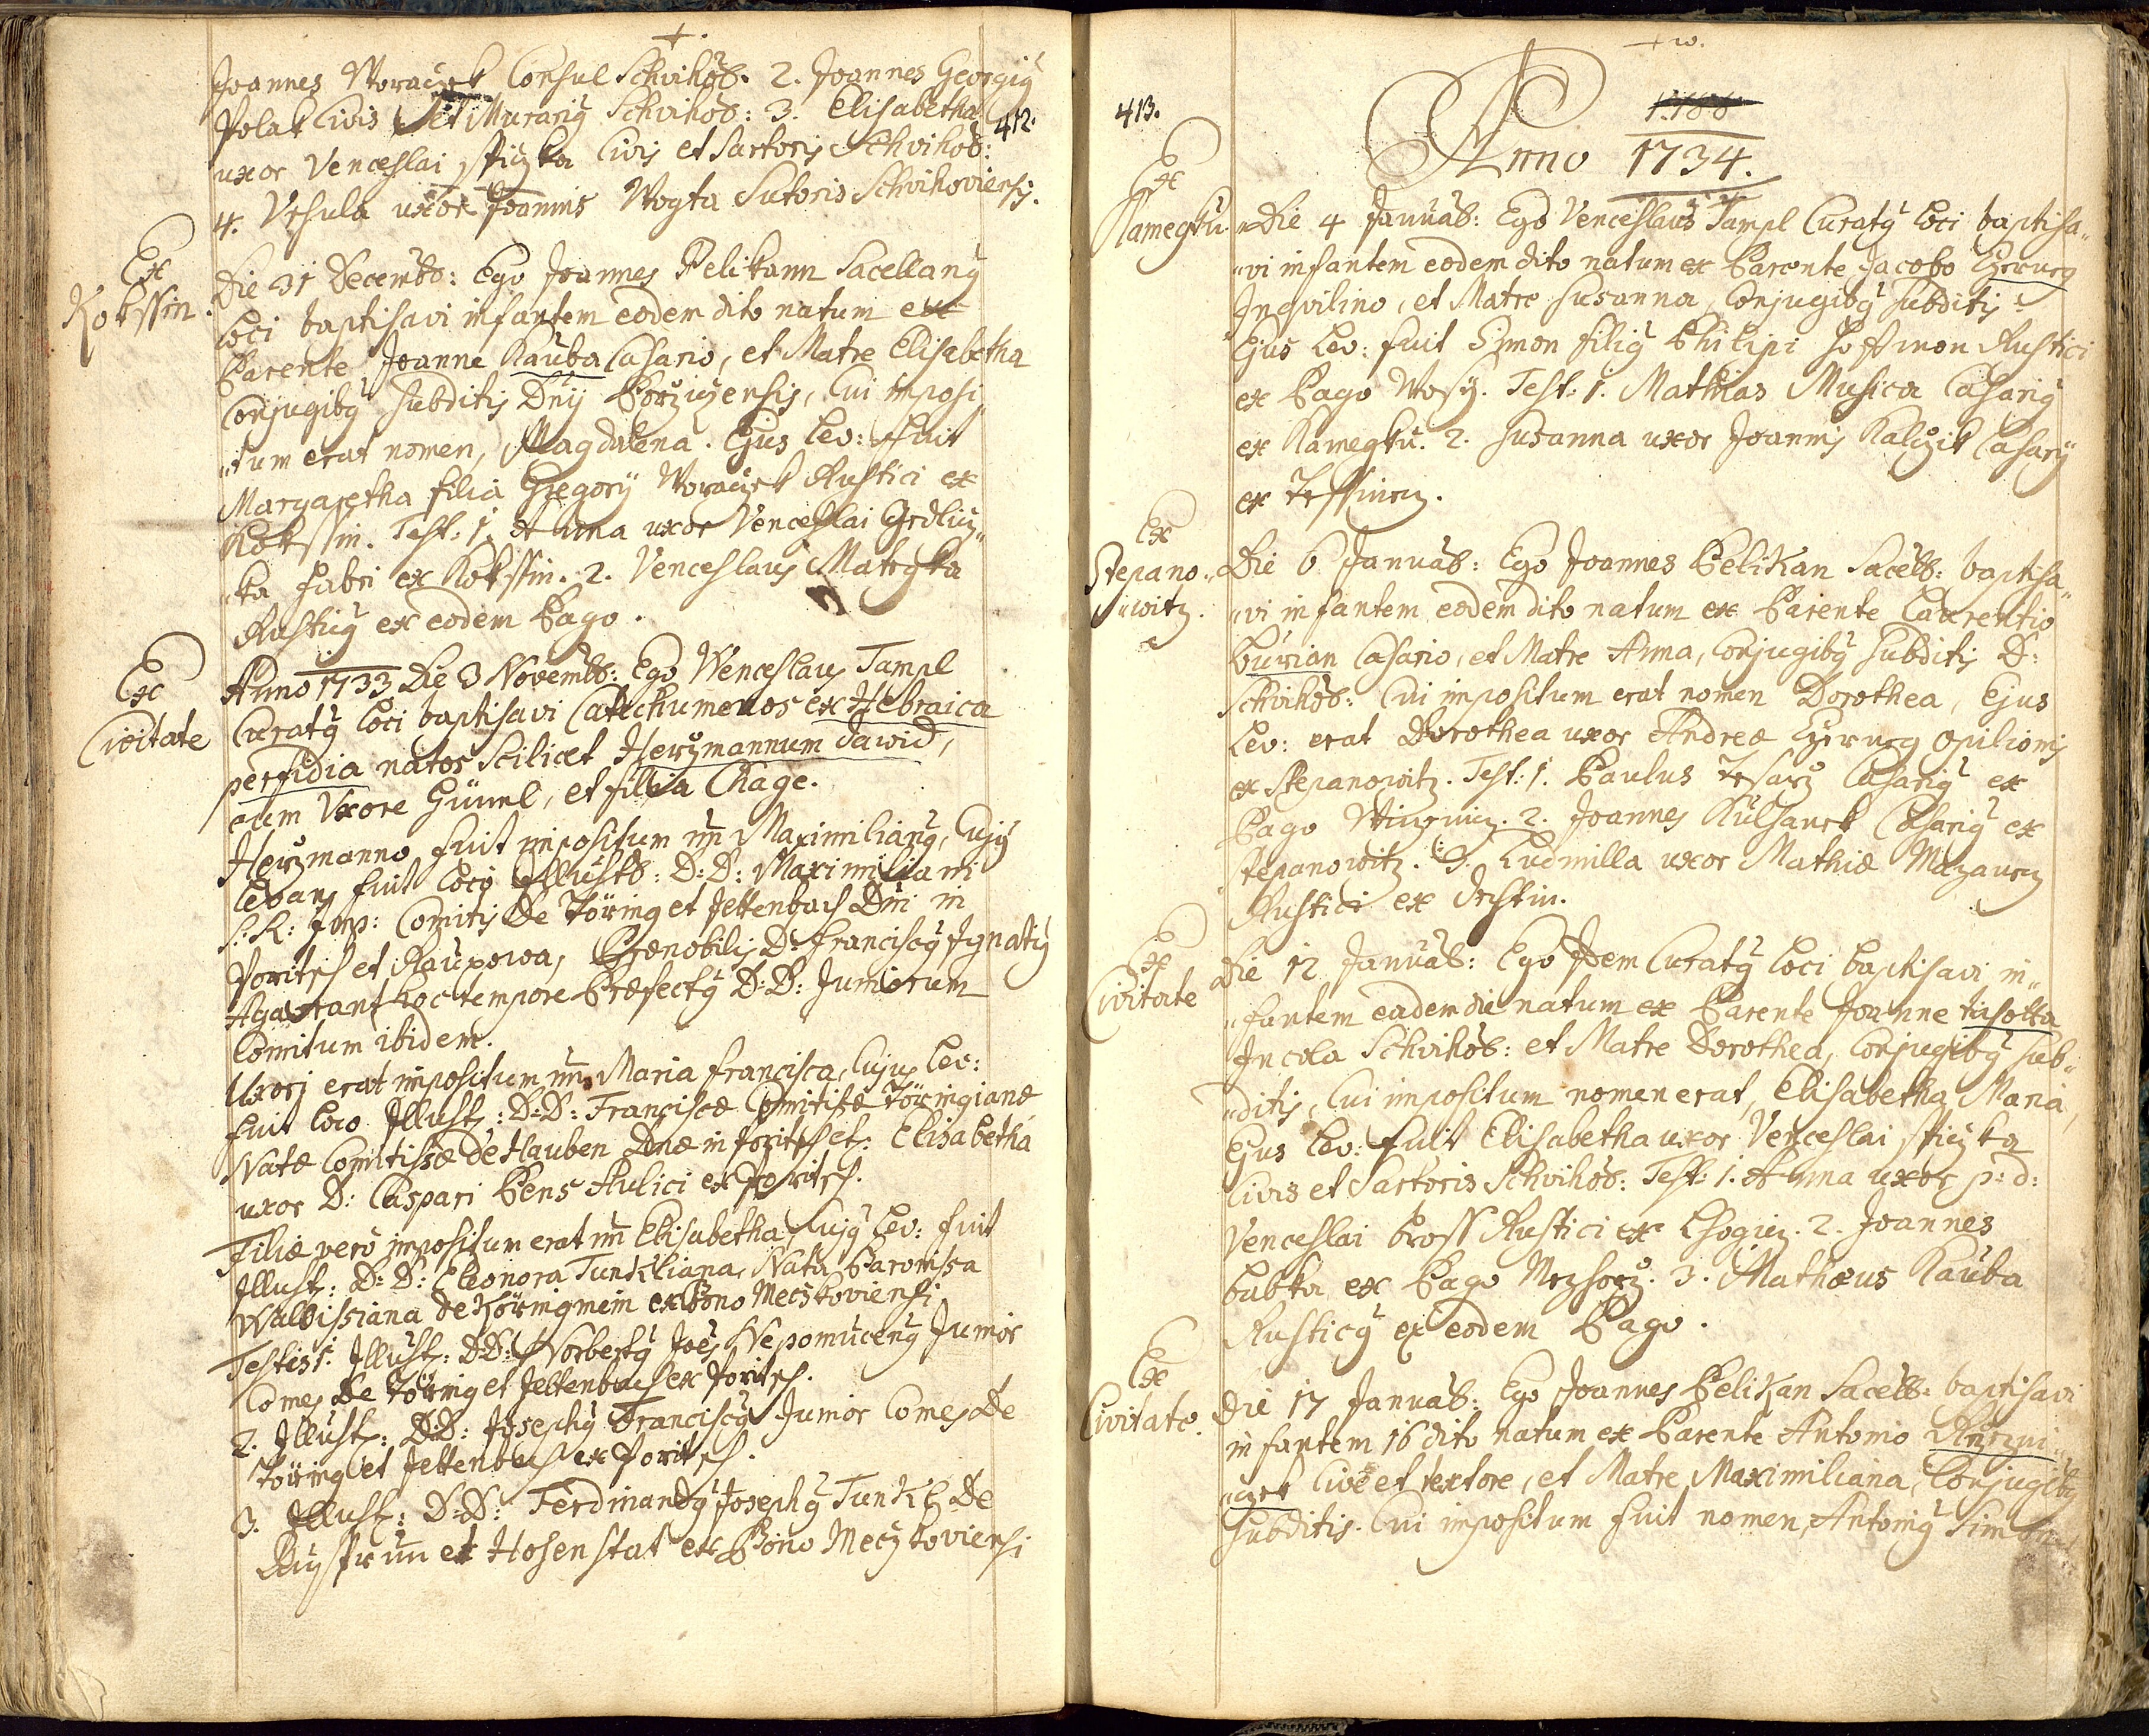 Joannes Woraczek Consul Schvihob. 2. Joannes Georgiȳ
Polak Civis et Murariȳ Schvihob: 3. Elisabetha
412.
uxor Venceslai Civis et Sartoris Schvihob:
4. Vrsula uxor Joannis Wogta Sutoris Schvihoviensis.
Ex
Kokssin.
Die 31 Decemb: Ego Joannes Pelikann Sacellanȳ
loci baptisavi infantem eodem dito natum ex
Parente Joanne Kauba Casario, et Matre Elisabetha
Conjugibȳ subditis Dnij Porziczensis, Cui imposi
tum erat nomen, Magdalena. Ejus Lev: fuit
Margaretha filia Gregorij Woraczek Rustici ex
Kokssin. Test: 1. Anna uxor Venceslai Grdlicz
ka fabri ex Kokssin. 2. Venceslaus Mategka
Rusticȳ ex eodem Pago.
Ex
Civitate
Anno 1733 Die 3 Novemb: Ego Wenceslaus Tampl
Curatȳ loci baptisavi Catechumenos ex Hebraica
perfidia natos Scilicet Herzmannum Dawid,
cum Vxore Güttel, et fillia Chage.
Herzmanno fuit impositum nn Maximilianȳ, Cujȳ
levans fuit loco Illustr: D: D: Maximiliani
S: R: Imp: Comitis De Törring et Jettenbach Dni in
Poritsch et Raupowa, Prænobilis D: Franciscȳ Ignatiȳ
hoc tempore Præfectȳ D: D: Juniorum
Comitum ibidem.
Uxori erat impositum nn Maria Francisca, Cujus Lev:
fuit loco Illust: D: D: Franciscæ Comitissæ Törringianæ
Natæ Comitissæ de Hauben Dnæ in Poritsch et: Elisabetha
uxor D: Caspari Pens Aulici ex Poritsch.
Filiæ vero impositum erat nn Elisabetha, Cujȳ Lev: fuit
Illust: D: D: Eleonora Tunkliana, Nata Baronissa
Waldissiana de ex Bono Meczkoviensi.
Testis 1. Illust: D D: Norbertȳ Joes Nepomucenȳ Junior
Comes De Törring et Jettenbach ex Poritsch.
2. Illust: D: D: Josephȳ Franciscȳ Junior Comes De
Törring et Jettenbach ex Poritsch.
3. Illust: D: D: Ferdinandȳ Josephȳ Tunkl De
et Hohenstat ex Bono Meczkoviensi
413.
Anno 1734.
Ex
Kamegku.
Die 4 Januab: Ego Venceslaus Tampl Curatȳ loci baptisa
vi infantem eodem dito natum ex Parente Jacobo
Inqvilino, et Matre Susanna, Conjugibȳ subditis
Ejus Lev: fuit Simon filiȳ Philipi Hoffmon Rustici
ex Pago Test: 1. Mathias Musica Casariȳ
ex Kamegku. 2. Susanna uxor Joannis Kalczik Casarij
ex
Ex
Stepano
witz.
Die 6 Januab: Ego Joannes Pelikan Sacell: baptisa
vi infantem eodem dito natum ex Parente Laurentio
Burian Casario, et Matre Anna, Conjugibȳ subditis D:
Schvihob: Cui impositum erat nomen Dorothea, Ejus
Lev: erat Dorothea uxor Andreæ Opilionis
ex Stepanowitz. Test: 1. Paulus Casariȳ ex
Pago 2. Joannes Kulhanek Casariȳ ex
Stepanowitz. 3. Ludmilla uxor Mathiæ
Rustici ex
Ex
Civitate
Die 12 Januab: Ego Idem Curatȳ loci baptisavi in
fantem eadem die natum ex Parente Joanne
Incola Schvihob: et Matre Dorothea, Conjugibȳ sub
ditis, Cui impositum nomen erat, Elisabetha Maria,
Ejus Lev: fuit Elisabetha uxor Venceslai
Civis et Sartoris Schvihob: Test: 1. Anna uxor p: d:
Venceslai Bross Rustici ex 2. Joannes
Babka ex Pago 3. Mathæus Kauba
Rusticȳ ex eodem Pago.
Ex
Civitate.
Die 17 Januab: Ego Joannes Pelikan Sacell: baptisavi
infantem 16 dito natum ex Parente Antonio
Cive et textore, et Matre Maximiliana, Conjugibȳ
subditis. Cui impositum fuit nomen Antoniȳ